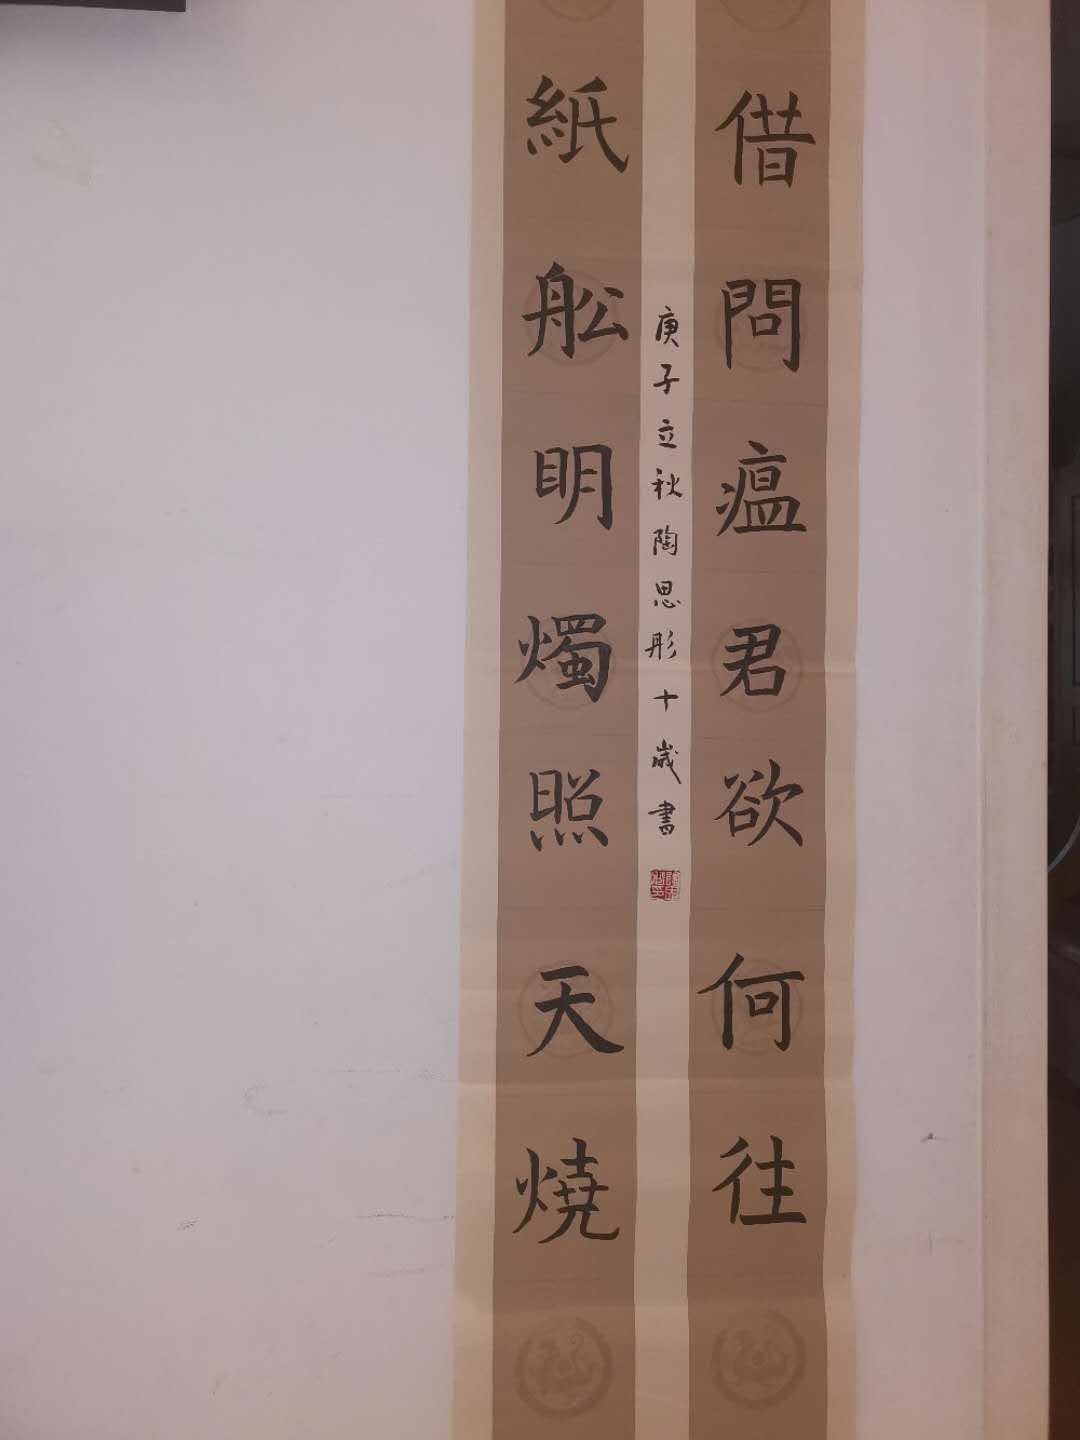 借問瘟君欲何往
紙舩明燭照天燒
庚子立秋陶思彤十歲書